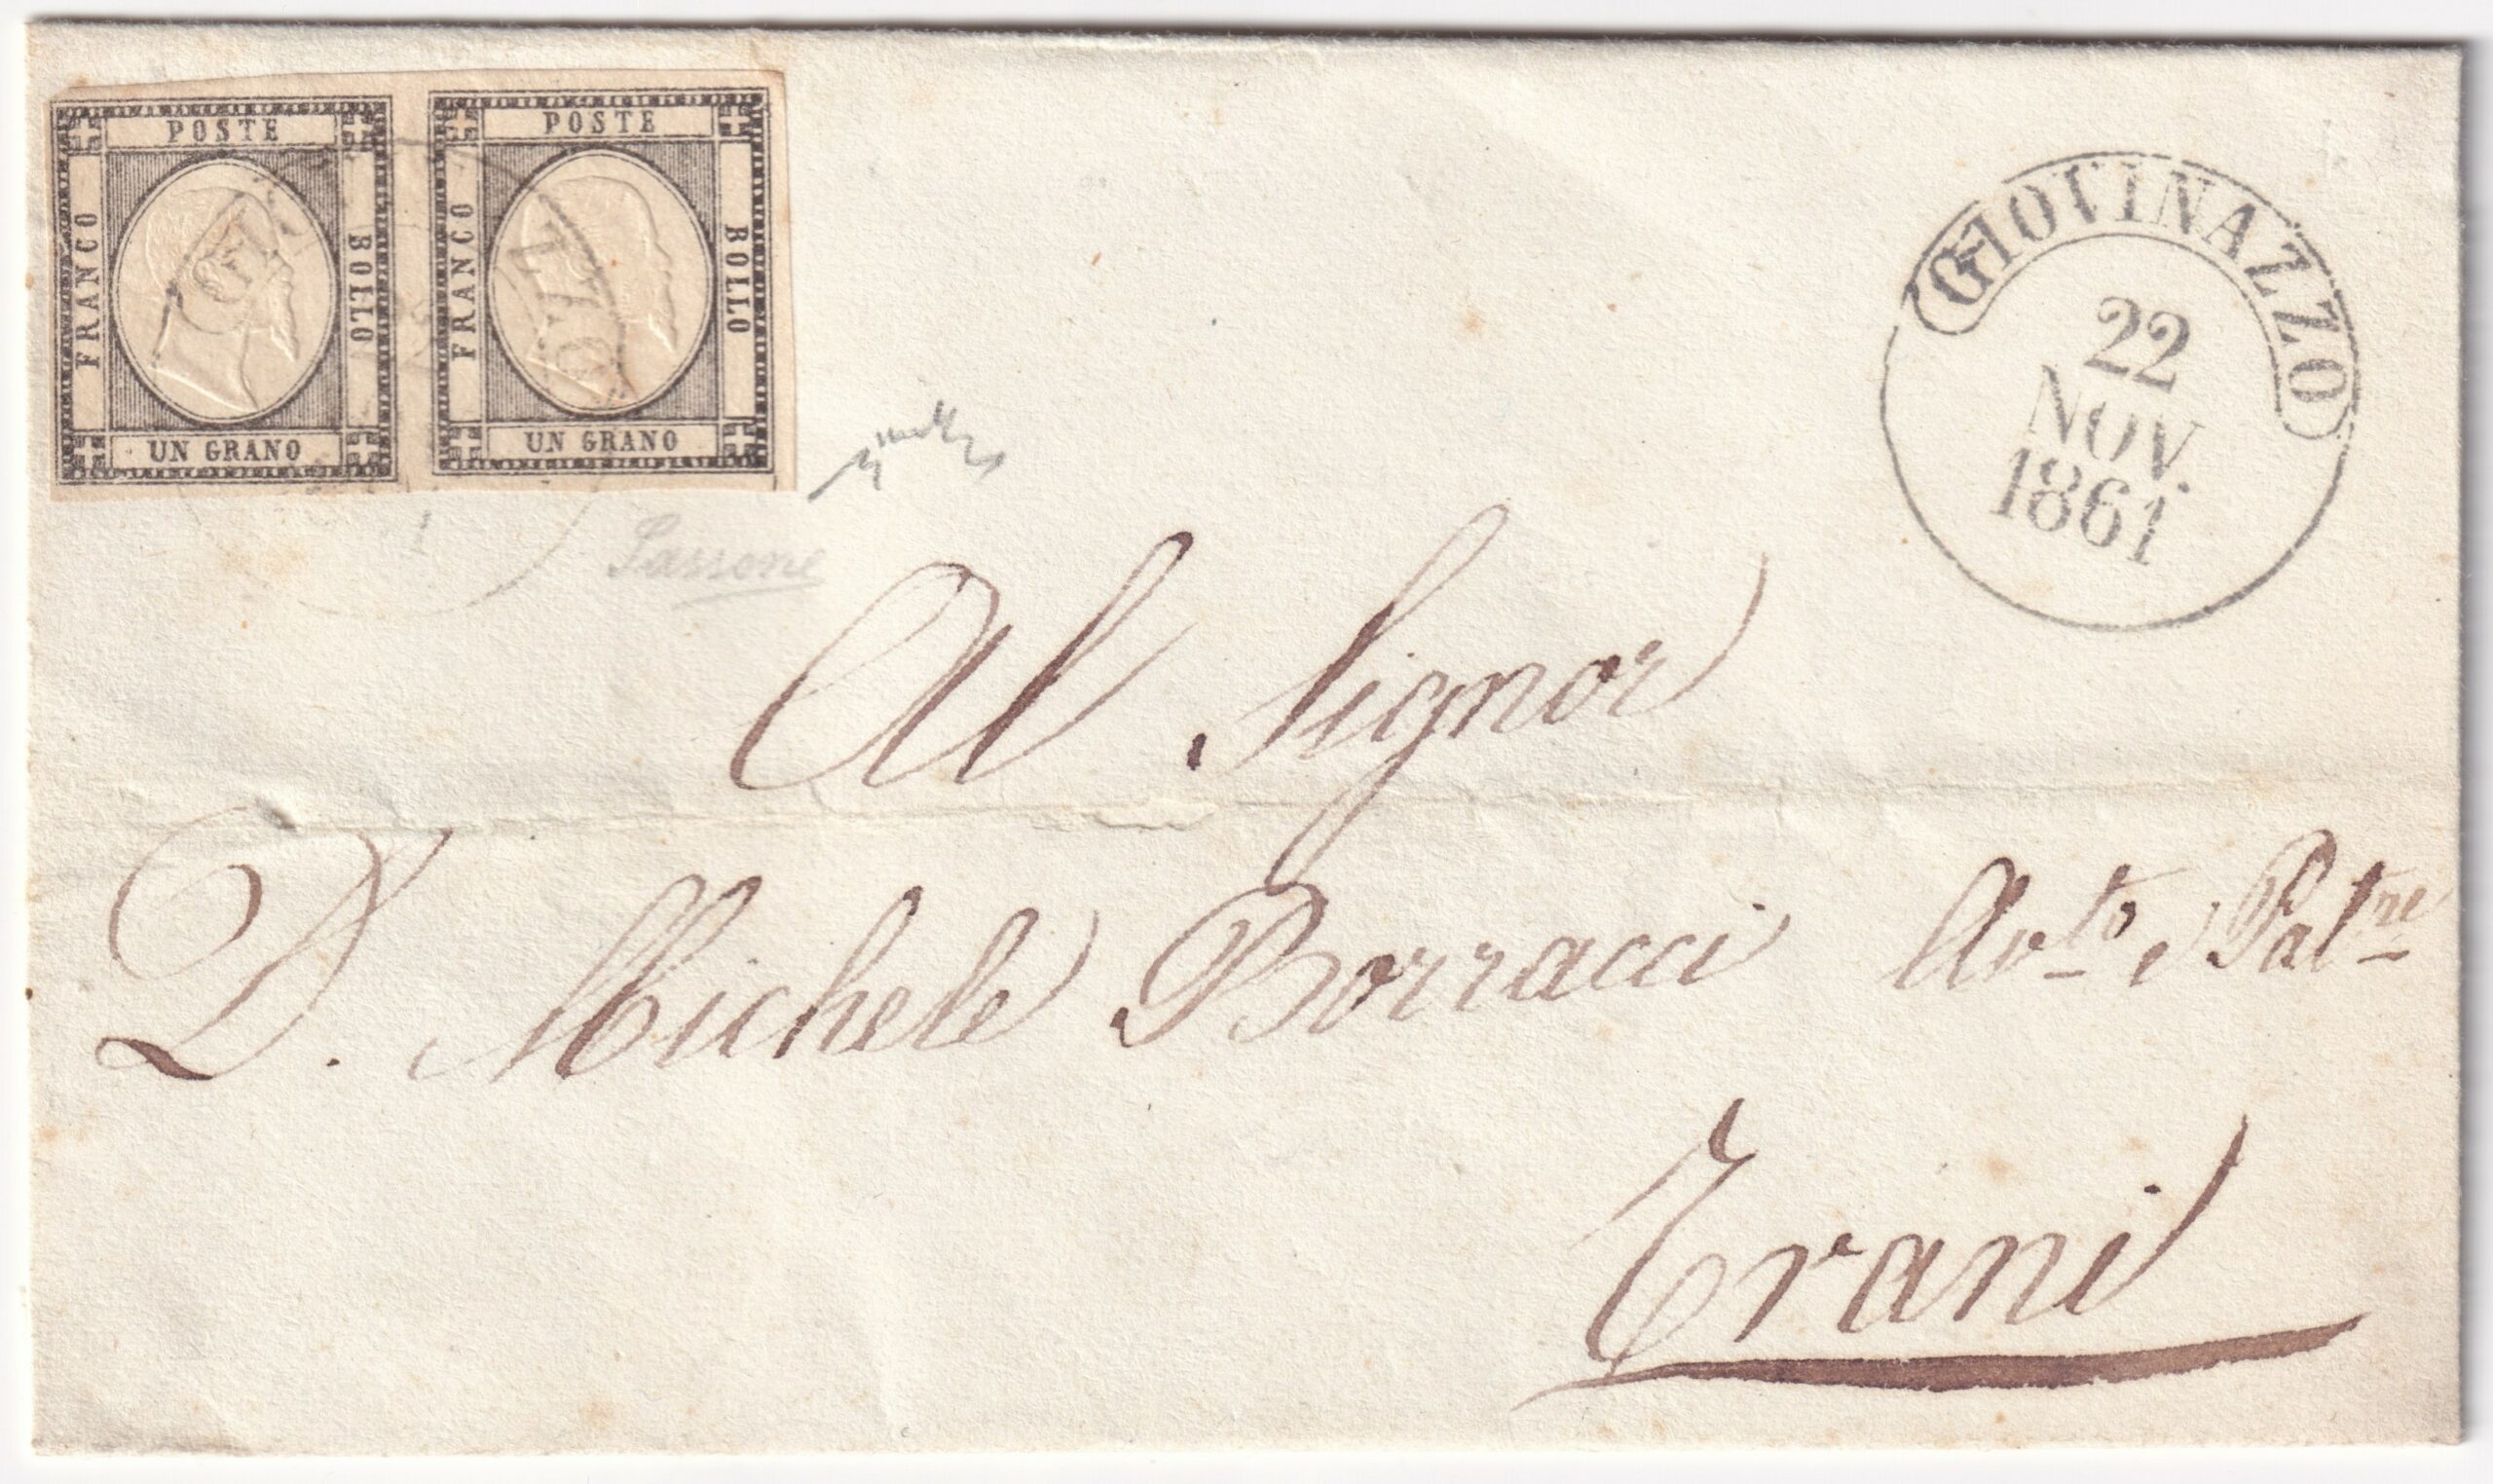 POSTE
FRANCO
BOLLO
UN GRANO
POSTE
FRANCO
BOLLO
UN GRANO
GIOVINAZZO
22
NOV.
1861
Al Signor
D. Michele Borracci Avto e Patne
Trani